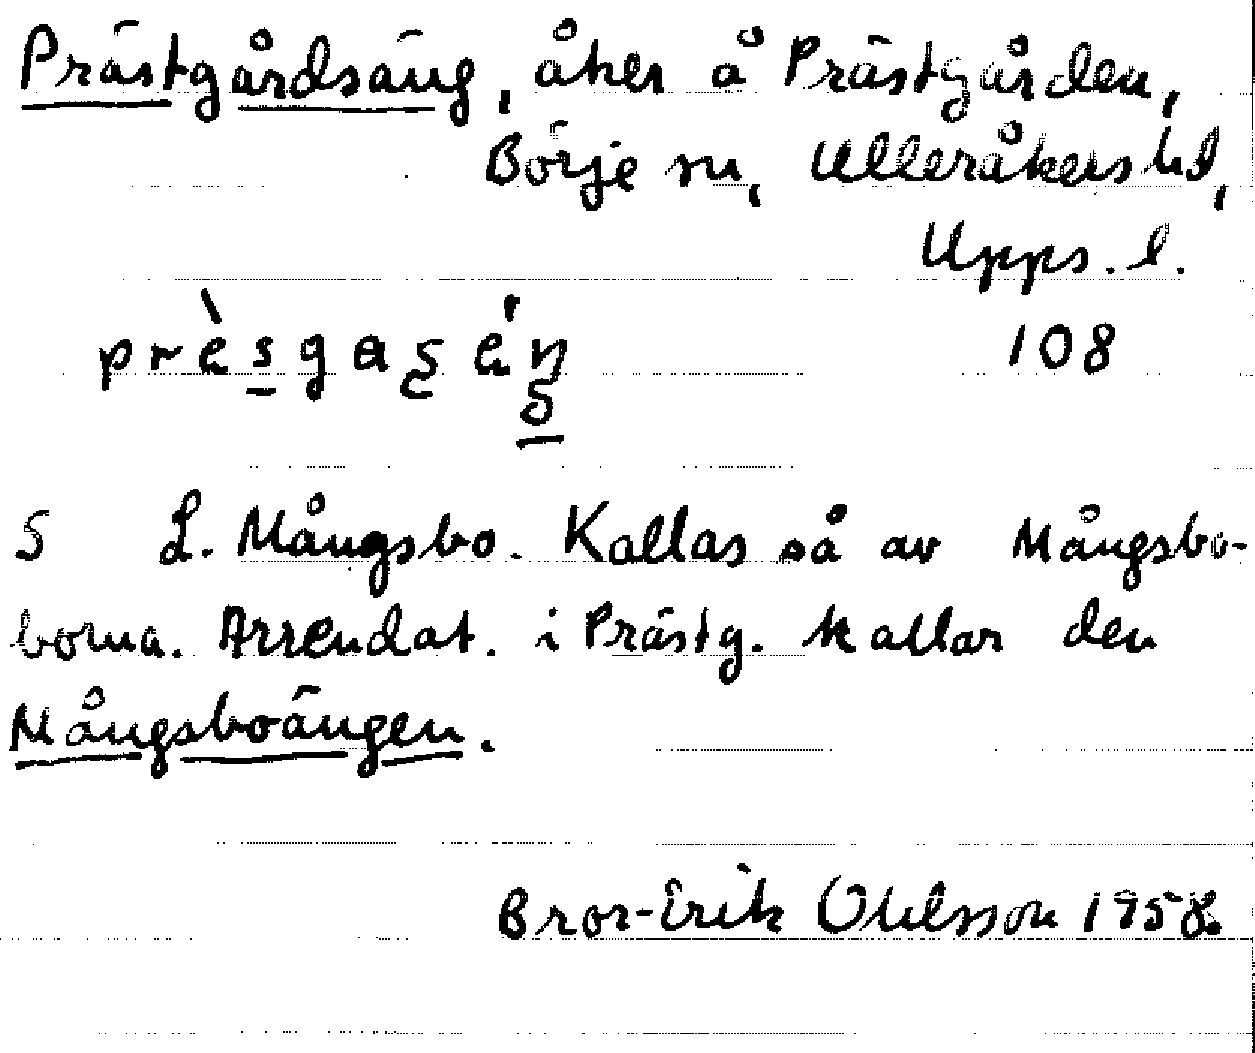 Prästgårdsäng, åker å Prästgården,
Börje sn, Ulleråkers hd,
Upps. l.
108
S L. Mångsbo. Kallas så av Mångsbo-
borna. Arrendat. i Prästg. kallar den
Mångsboängen.
Bror-Erik Ohlsson 1958.